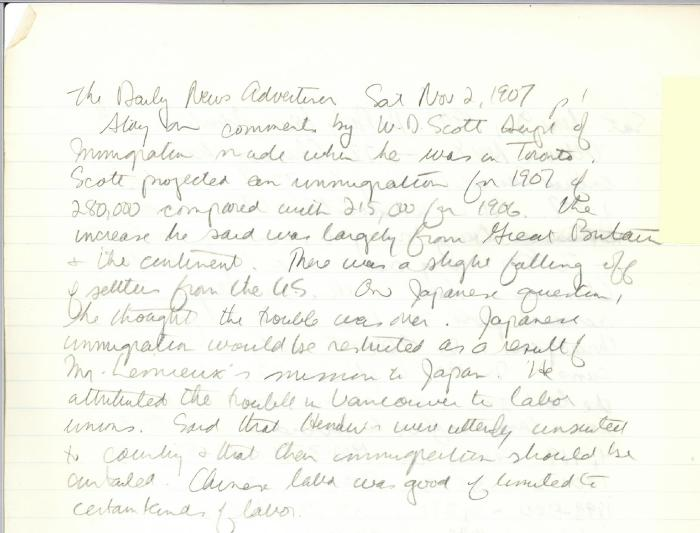 The Daily News Advertiser Sat Nov 2, 1907 p 1
Story on comments by W.D. Scott Supt of
Immigration made when he was in Toronto.
Scott projected an immigration for 1907 of
280,000 compared with 215,000 for 1906. The
increase he said was largely from Great Britain
& the continent. There was a slight falling off
of settlers from the US. On Japanese question,
he thought the trouble was over. Japanese
immigration would be restricted as a result of
Mr. Lemieux's mission to Japan. He
attributed the trouble in Vancouver to labor
unions. Said that Hindus were utterly unsuited
to country & that their immigration should be
curtailed. Chinese labor was good if limited to
certain kinds of labor.